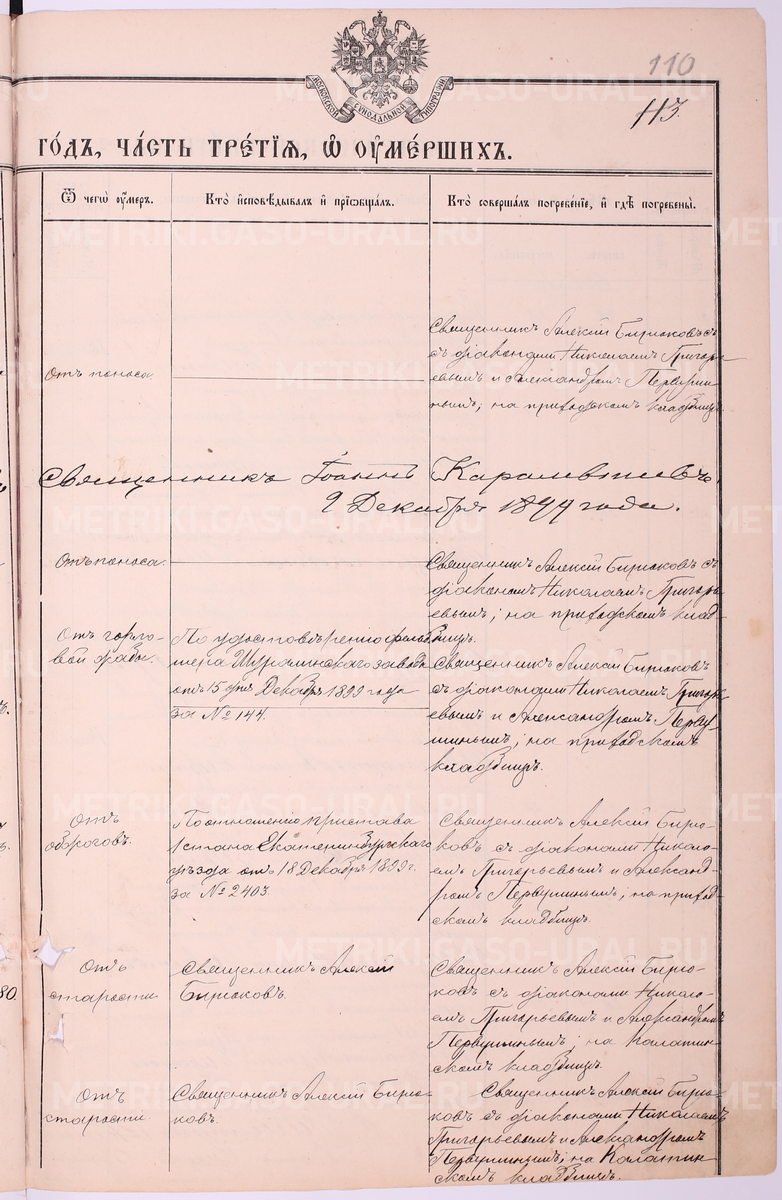 110
113.
МОСКОВСКОЙ СѴНОДАЛЬНОЙ ТИПОГРАФІИ
ГО́ДЪ, ЧА́СТЬ ТРЕ́ТІѦ, Ѡ҆ ОУ҆МЕ́РШИХЪ.
Ѿ чегѡ̀ оу҆́меръ.
Кто̀ и҆сповѣ́дывалъ и҆ прїѡбща́лъ.
Кто̀ соверша́лъ погребе́нїе, и҆ гдѣ̀ погребены̀.
Отъ поноса
Священникъ Алексій Бирюковъ съ
съ діаконами Николаемъ Григорь
евымъ и Александромъ Первуши
нымъ; на приходскомъ кладбищѣ.
Священникъ Іоаннъ
9 Декабря 1899 года.
Отъ поноса.
Священникъ Алексій Бирюковъ съ
діакономъ Николаемъ Григорь
евымъ; на приходскомъ клад
бищѣ.
Отъ горло-
вой жабы.
По удостовѣренію фельд
шера Шуралинскаго завода
отъ 15 дня Декабря 1899 года
за № 144.
Священникъ Алексій Бирюковъ
съ діаконами Николаемъ Григорь
евымъ и Александромъ Перву-
шинымъ; на приходскомъ
кладбищѣ.
Отъ
ожоговъ.
По отношенію пристава
1 стана Екатеринбургскаго
уѣзда отъ 18 Декабря 1899 г.
за № 2403.
Священникъ Алексій Бирю-
ковъ съ діаконами Никола-
емъ Григорьевымъ и Александ-
ромъ Первушинымъ; на приход-
скомъ кладбищѣ.
Отъ
старости
Священникъ Алексій
Бирюковъ.
Священникъ Алексій Бирю-
ковъ съ діаконами Никола-
емъ Григорьевымъ и Александромъ
Первушинымъ; на Калатин-
скомъ кладбищѣ.
Отъ
старости.
Священникъ Алексій Бирю-
ковъ.
Священникъ Алексій Бирю-
ковъ съ діаконами Николаемъ
Григорьевымъ и Александромъ
Первушинымъ; на Калатин-
скомъ кладбищѣ.
80.
METRIKI.GASO-URAL.RU